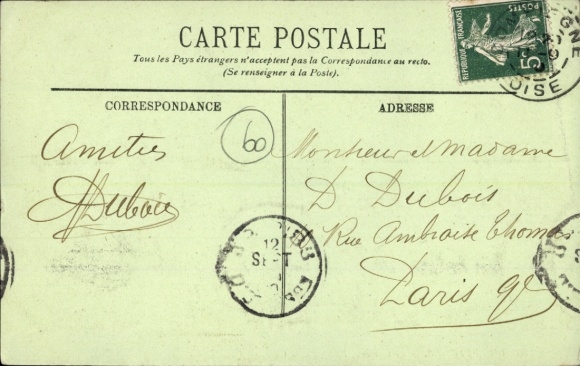 CARTE POSTALE
Tous les Pays étrangers n'acceptent pas la Correspondance au recto.
(Se renseigner à la Poste).
CORRESPONDANCE
ADRESSE
60
Amitiés
Dubois
Monsieur et Madame
D Dubois
Rue Ambroise Thomas
Paris 9e
REPUBLIQUE FRANÇAISE
POSTES
5c
OISE
12
SEPT